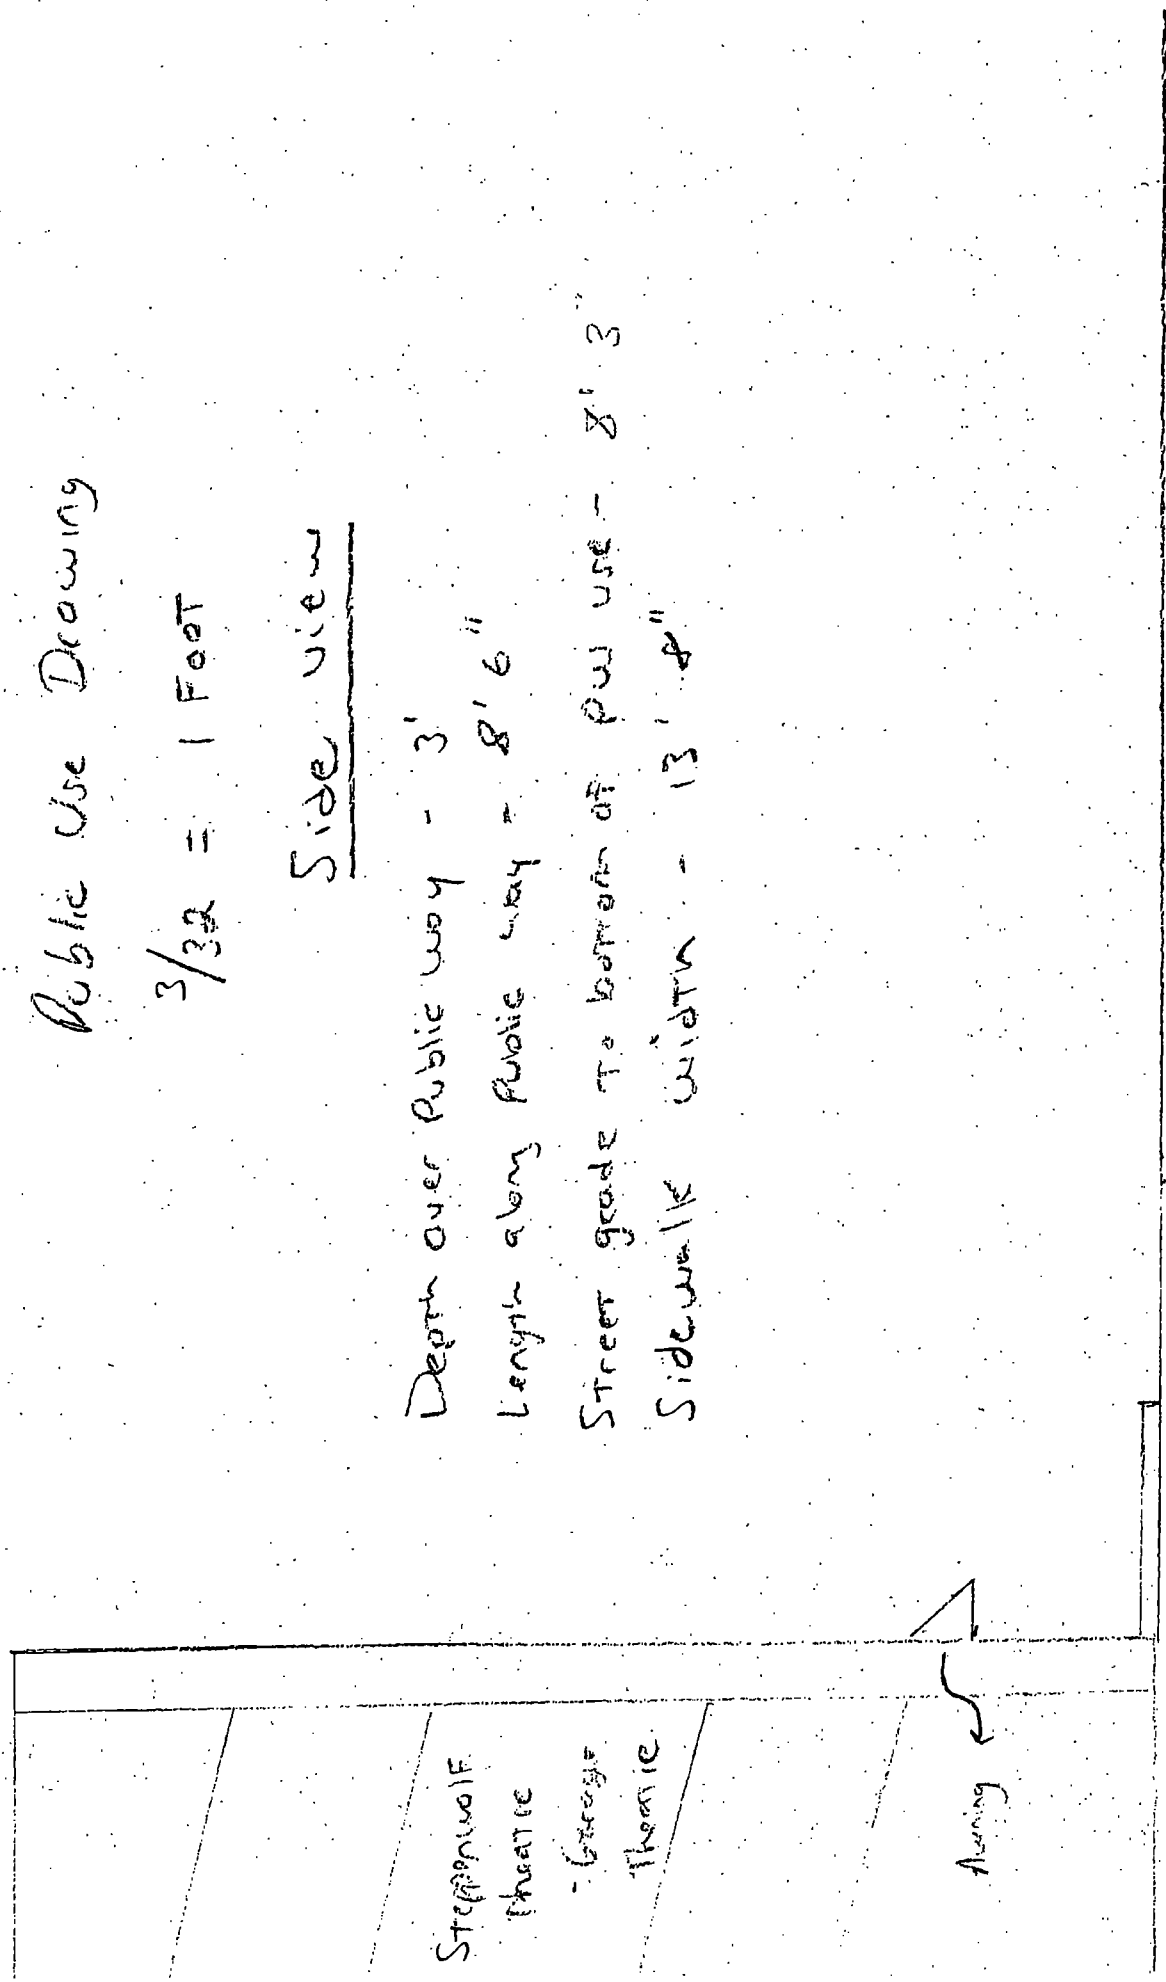 Public Use Drawing
3/32 = 1 FOOT
Side view
Depth over Public way - 3'
Length along Public way - 8' 6"
Street grade to bottom of PW use - 8' 3"
Sidewalk width - 13' 8"
Steppenwolf
Theatre
- Garage
Theatre
Awning